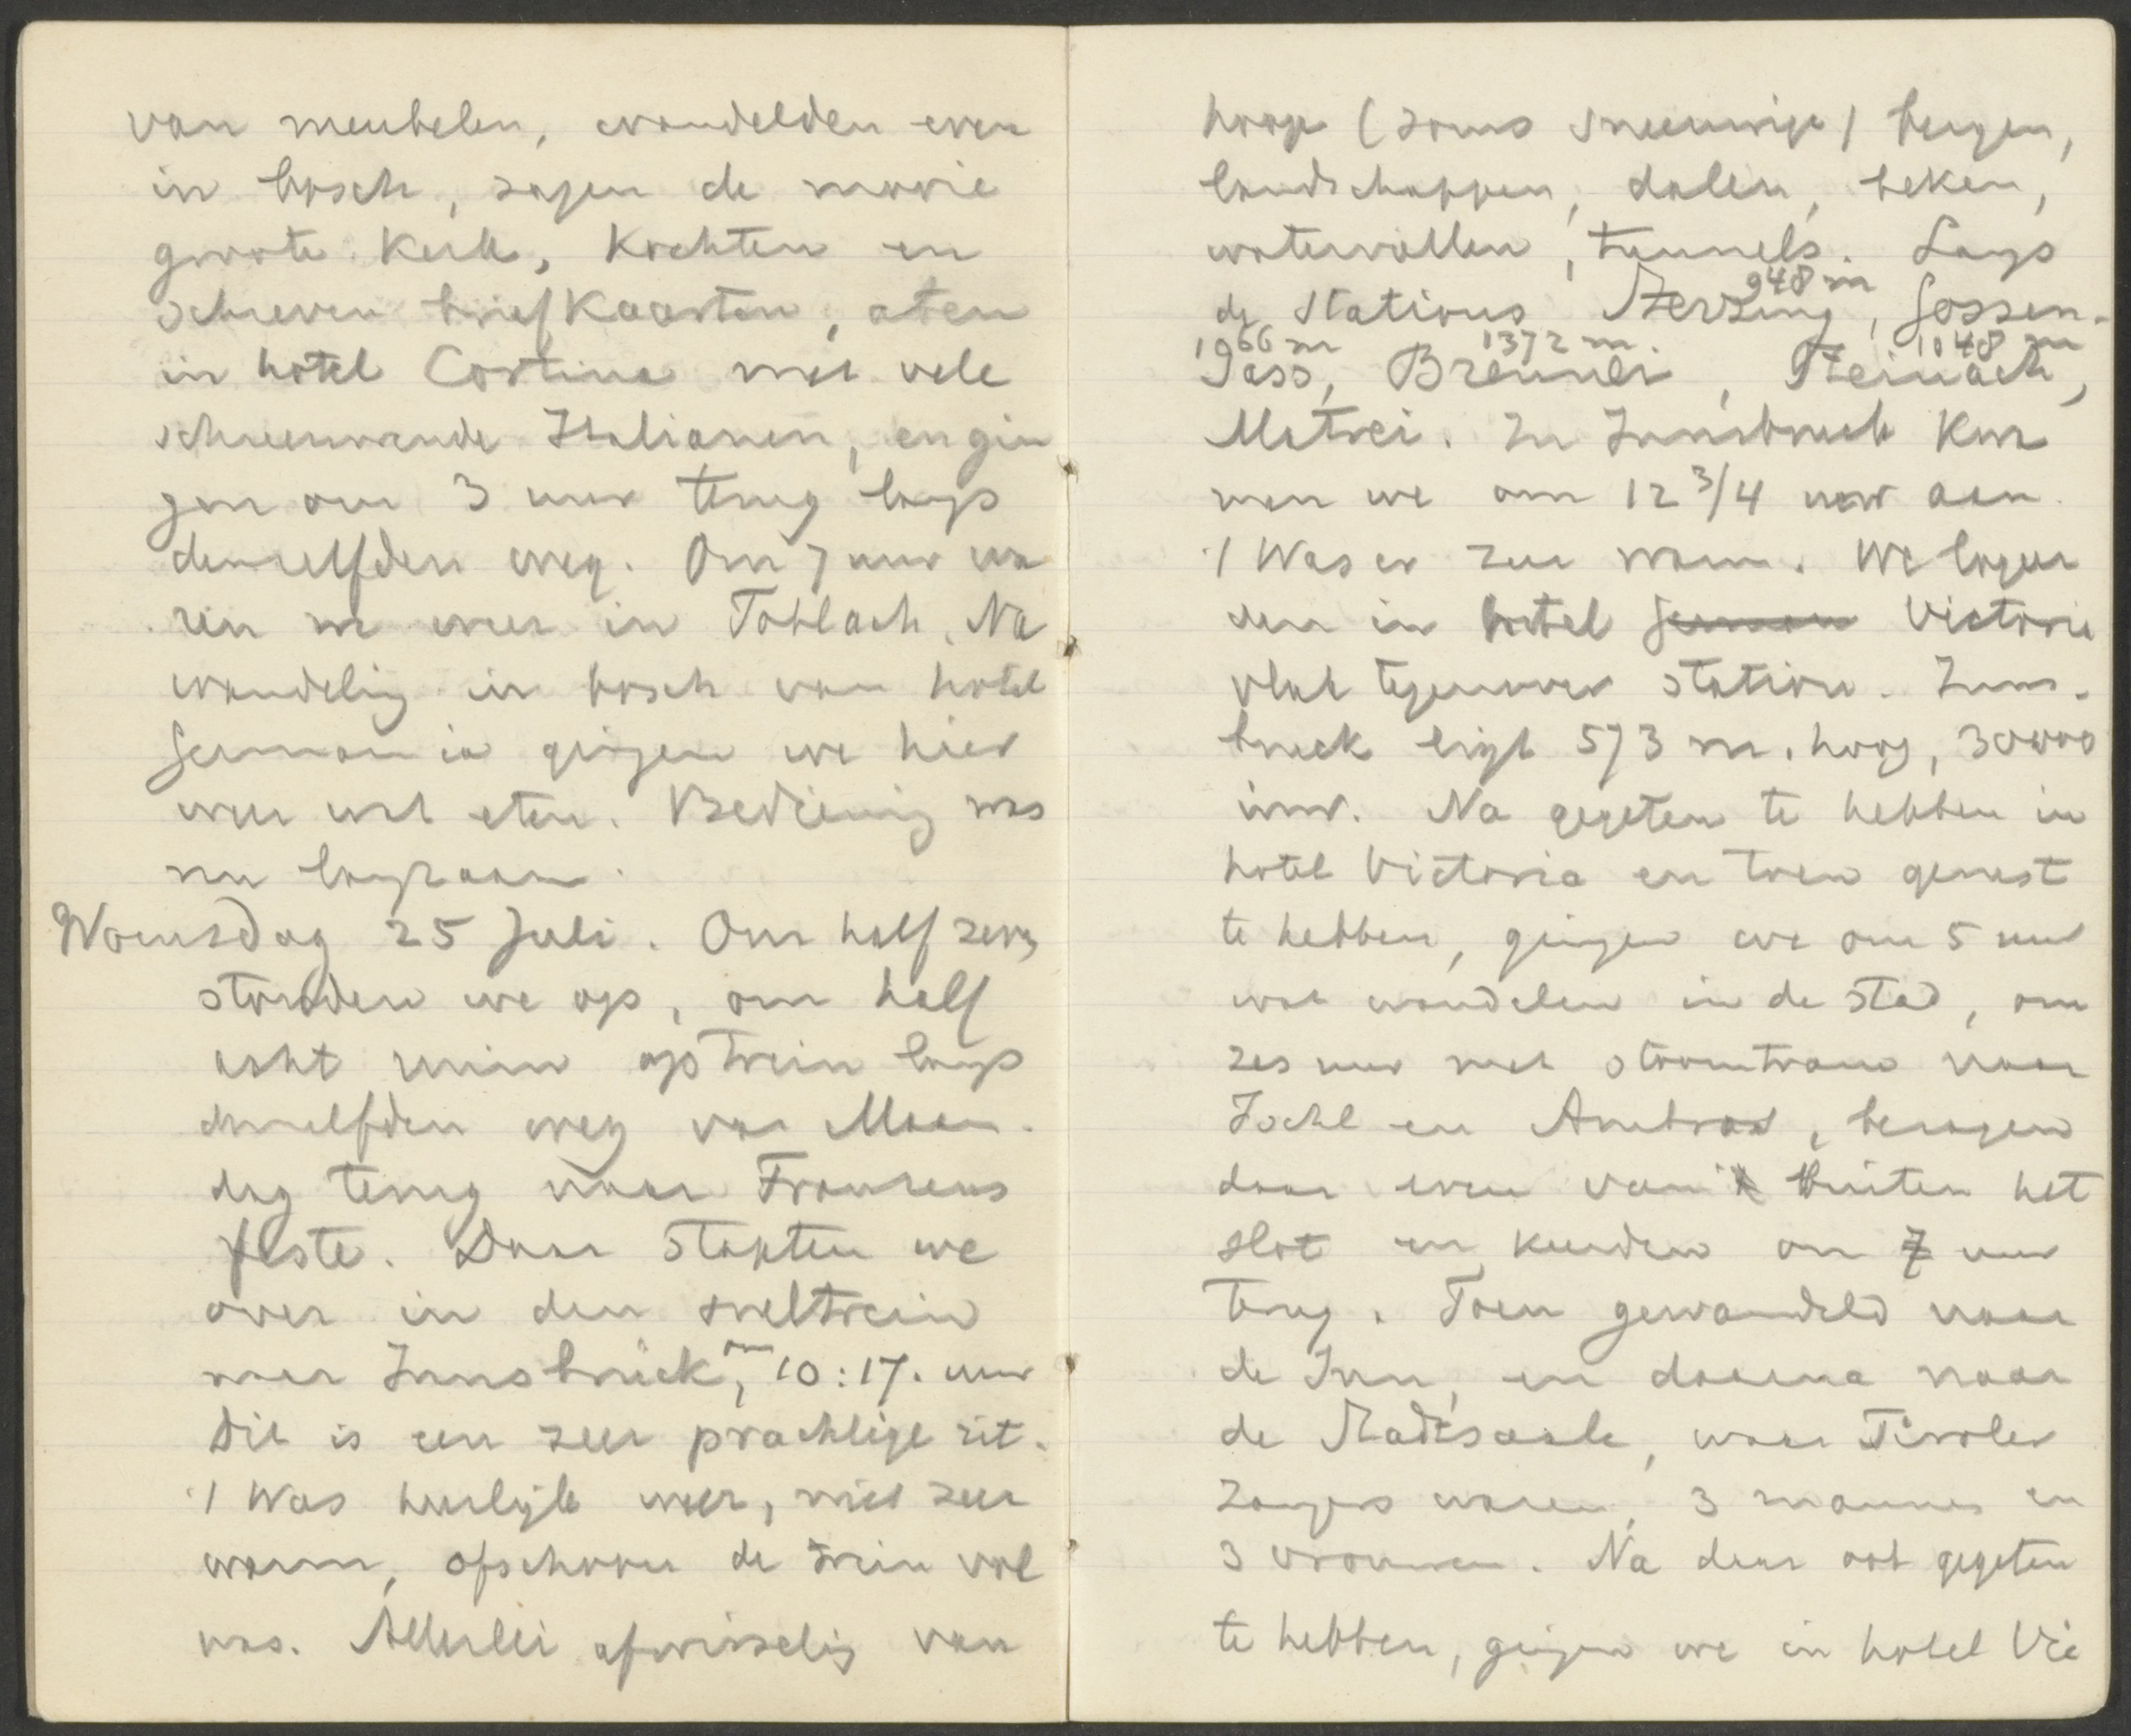 van meubelen, wandelden even
in bosch, zagen de mooie
groote kerk, kochten en
schreven briefkaarten, aten
in hotel Cortina met vele
schreeuwende Italianen, en gin
gen om 3 uur terug langs
denzelfden weg. Om 7 uur wa
ren we weer in Toblach. Na
wandeling in bosch van hotel
Germania gingen we hier
weer wat eten. Bediening was
nu langzaam.
Woensdag 25 Juli. Om half zeven
stonden we op, om half
acht in trein langs
denzelfden weg van Maan-
dag terug naar Franzens
feste. Daar stapten we
over in den sneltrein
naar Innsbrück, om 10:17. uur
Dit is een zeer prachtige rit.
't Was heerlijk weer, niet zeer
warm, ofschoon de trein vol
was. Allerlei afwisseling van
hooge (soms sneeuwige) bergen,
landschappen, dalen, beken,
watervallen, tunnels. Langs
de stations Sterzing 948 m, Gossen-
sass 1066 m, Brenner 1372 m., Steinach 1048 m,
Matrei. In Innsbruck kwa
men we om 12 3/4 uur aan.
't Was er zeer warm. We logeer
den in hotel Victoria
vlak tegenover station. Inns-
bruck ligt 573 m. hoog, 30000
inw. Na gegeten te hebben in
hotel Victoria en toen gerust
te hebben, gingen we om 5 uur
wat wandelen in de stad, om
zes uur met stoomtram naar
Igls en Ambras, bezagen
daar even van buiten het
slot en keerden om 7 uur
terug. Toen gewandeld naar
de Inn, en daarna naar
de Stadtsaale, waar Tiroler
Zangers waren, 3 mannen en
3 vrouwen. Na daar ook gegeten
te hebben, gingen we in hotel Vic